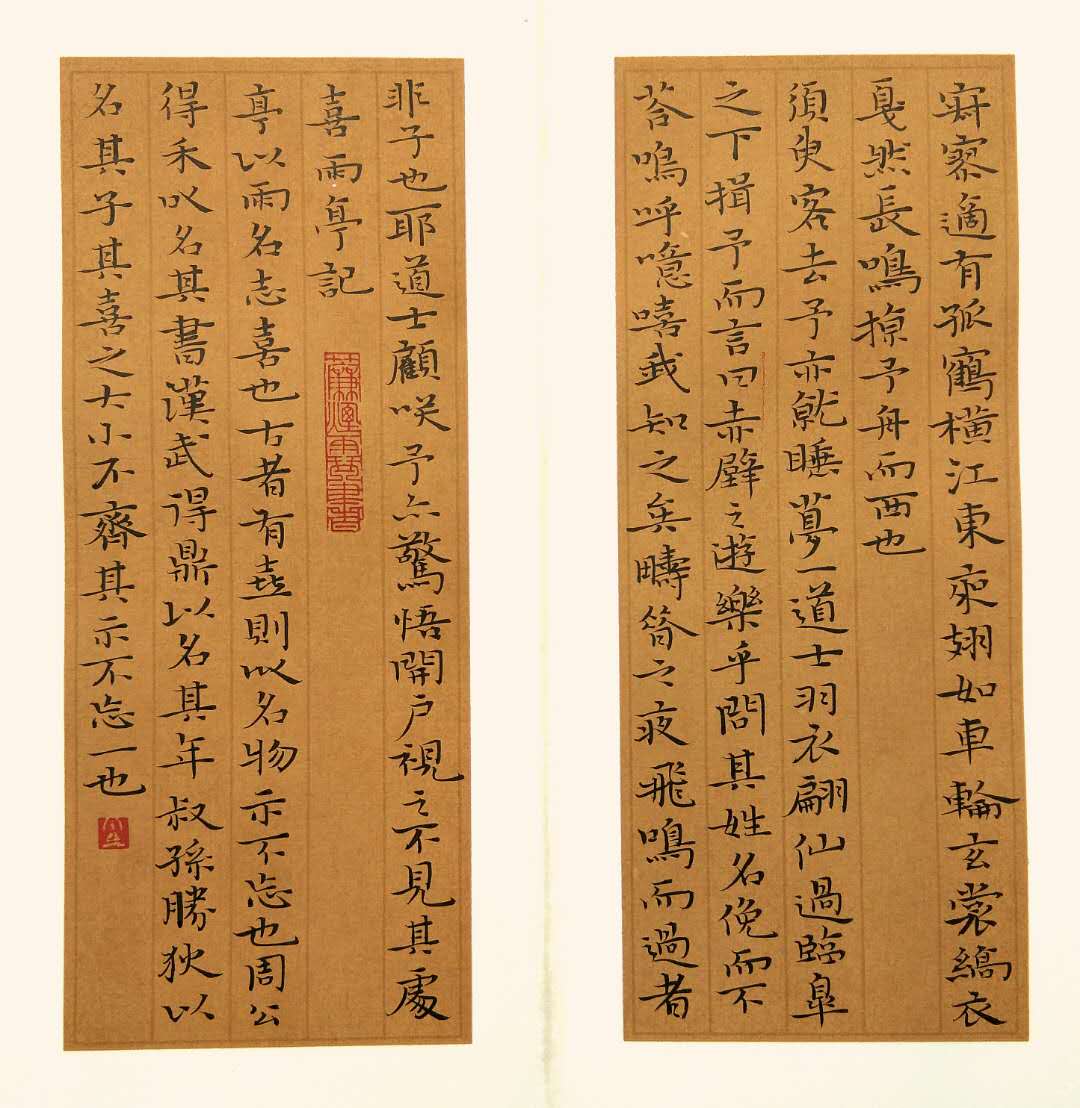 寂寥適有孤鶴橫江東來翅如車輪玄裳縞衣
戛然長鳴掠予舟而西也
須臾客去予亦就睡夢一道士羽衣翩仙過臨皐
之下揖予而言曰赤壁之遊樂乎問其姓名俛而不
荅鳴呼噫嘻我知之矣疇昝之夜飛鳴而過者
非子也耶道士顧咲予亦驚悟開戶視之不見其處
喜雨亭記
亭以雨名志喜也古者有喜則以名物示不忘也周公
得禾以名其書漢武得鼎以名其年叔孫勝狄以
名其子其喜之大小不齊其示不忘一也